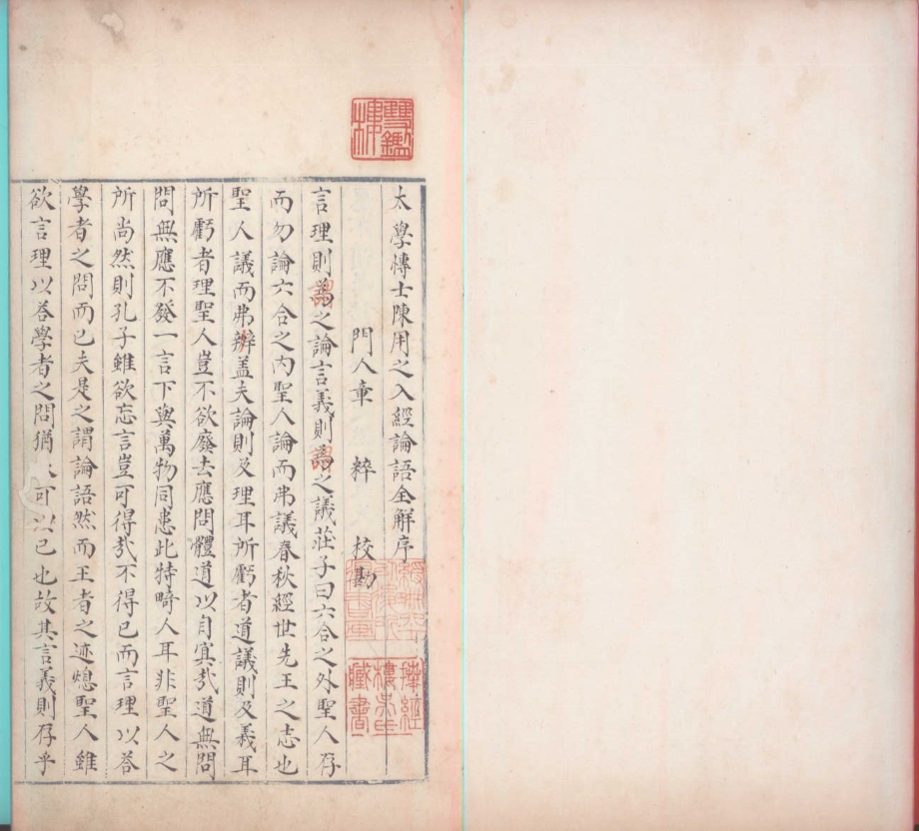 雙鑑樓
太學愽士陳用之入經論語全解序
門人章 粹 校勘
言理則謂之論言義則謂之議莊子曰六合之外聖人存
而勿論六合之內聖人論而弗議春秋經世先王之志也
聖人議而弗辨盖夫論則及理耳所虧者道議則及義耳
所虧者理聖人豈不欲廢去應問體道以自㝠㢤道無問
問無應不發一言下與萬物同患此特畸人耳非聖人之
所尚然則孔子雖欲忘言豈可得㢤不得已而言理以荅
學者之問而已夫是之謂論語然而王者之迹熄聖人雖
欲言理以荅學者之問猶可以已也故其言義則存乎